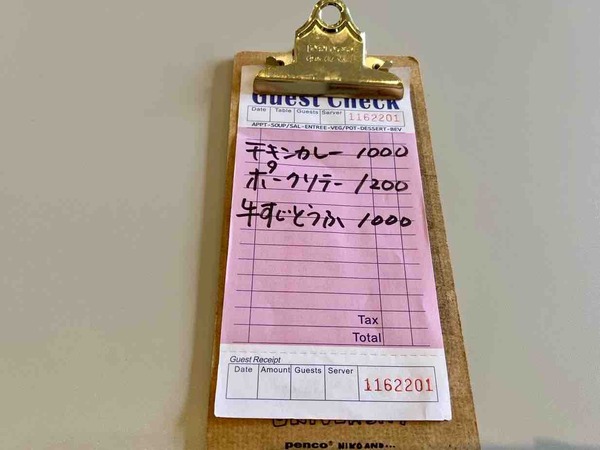 Guest Check
Date Table Guests Server 1162201
APPT-SOUP/SAL-ENTREE-VEG/POT-DESSERT-BEV
チキンカレー 1000
ポークソテー 1200
牛すじとうふ 1000
Tax
Total
Guest Receipt
Date Amount Guests Server 1162201
penco® HIKO AND...